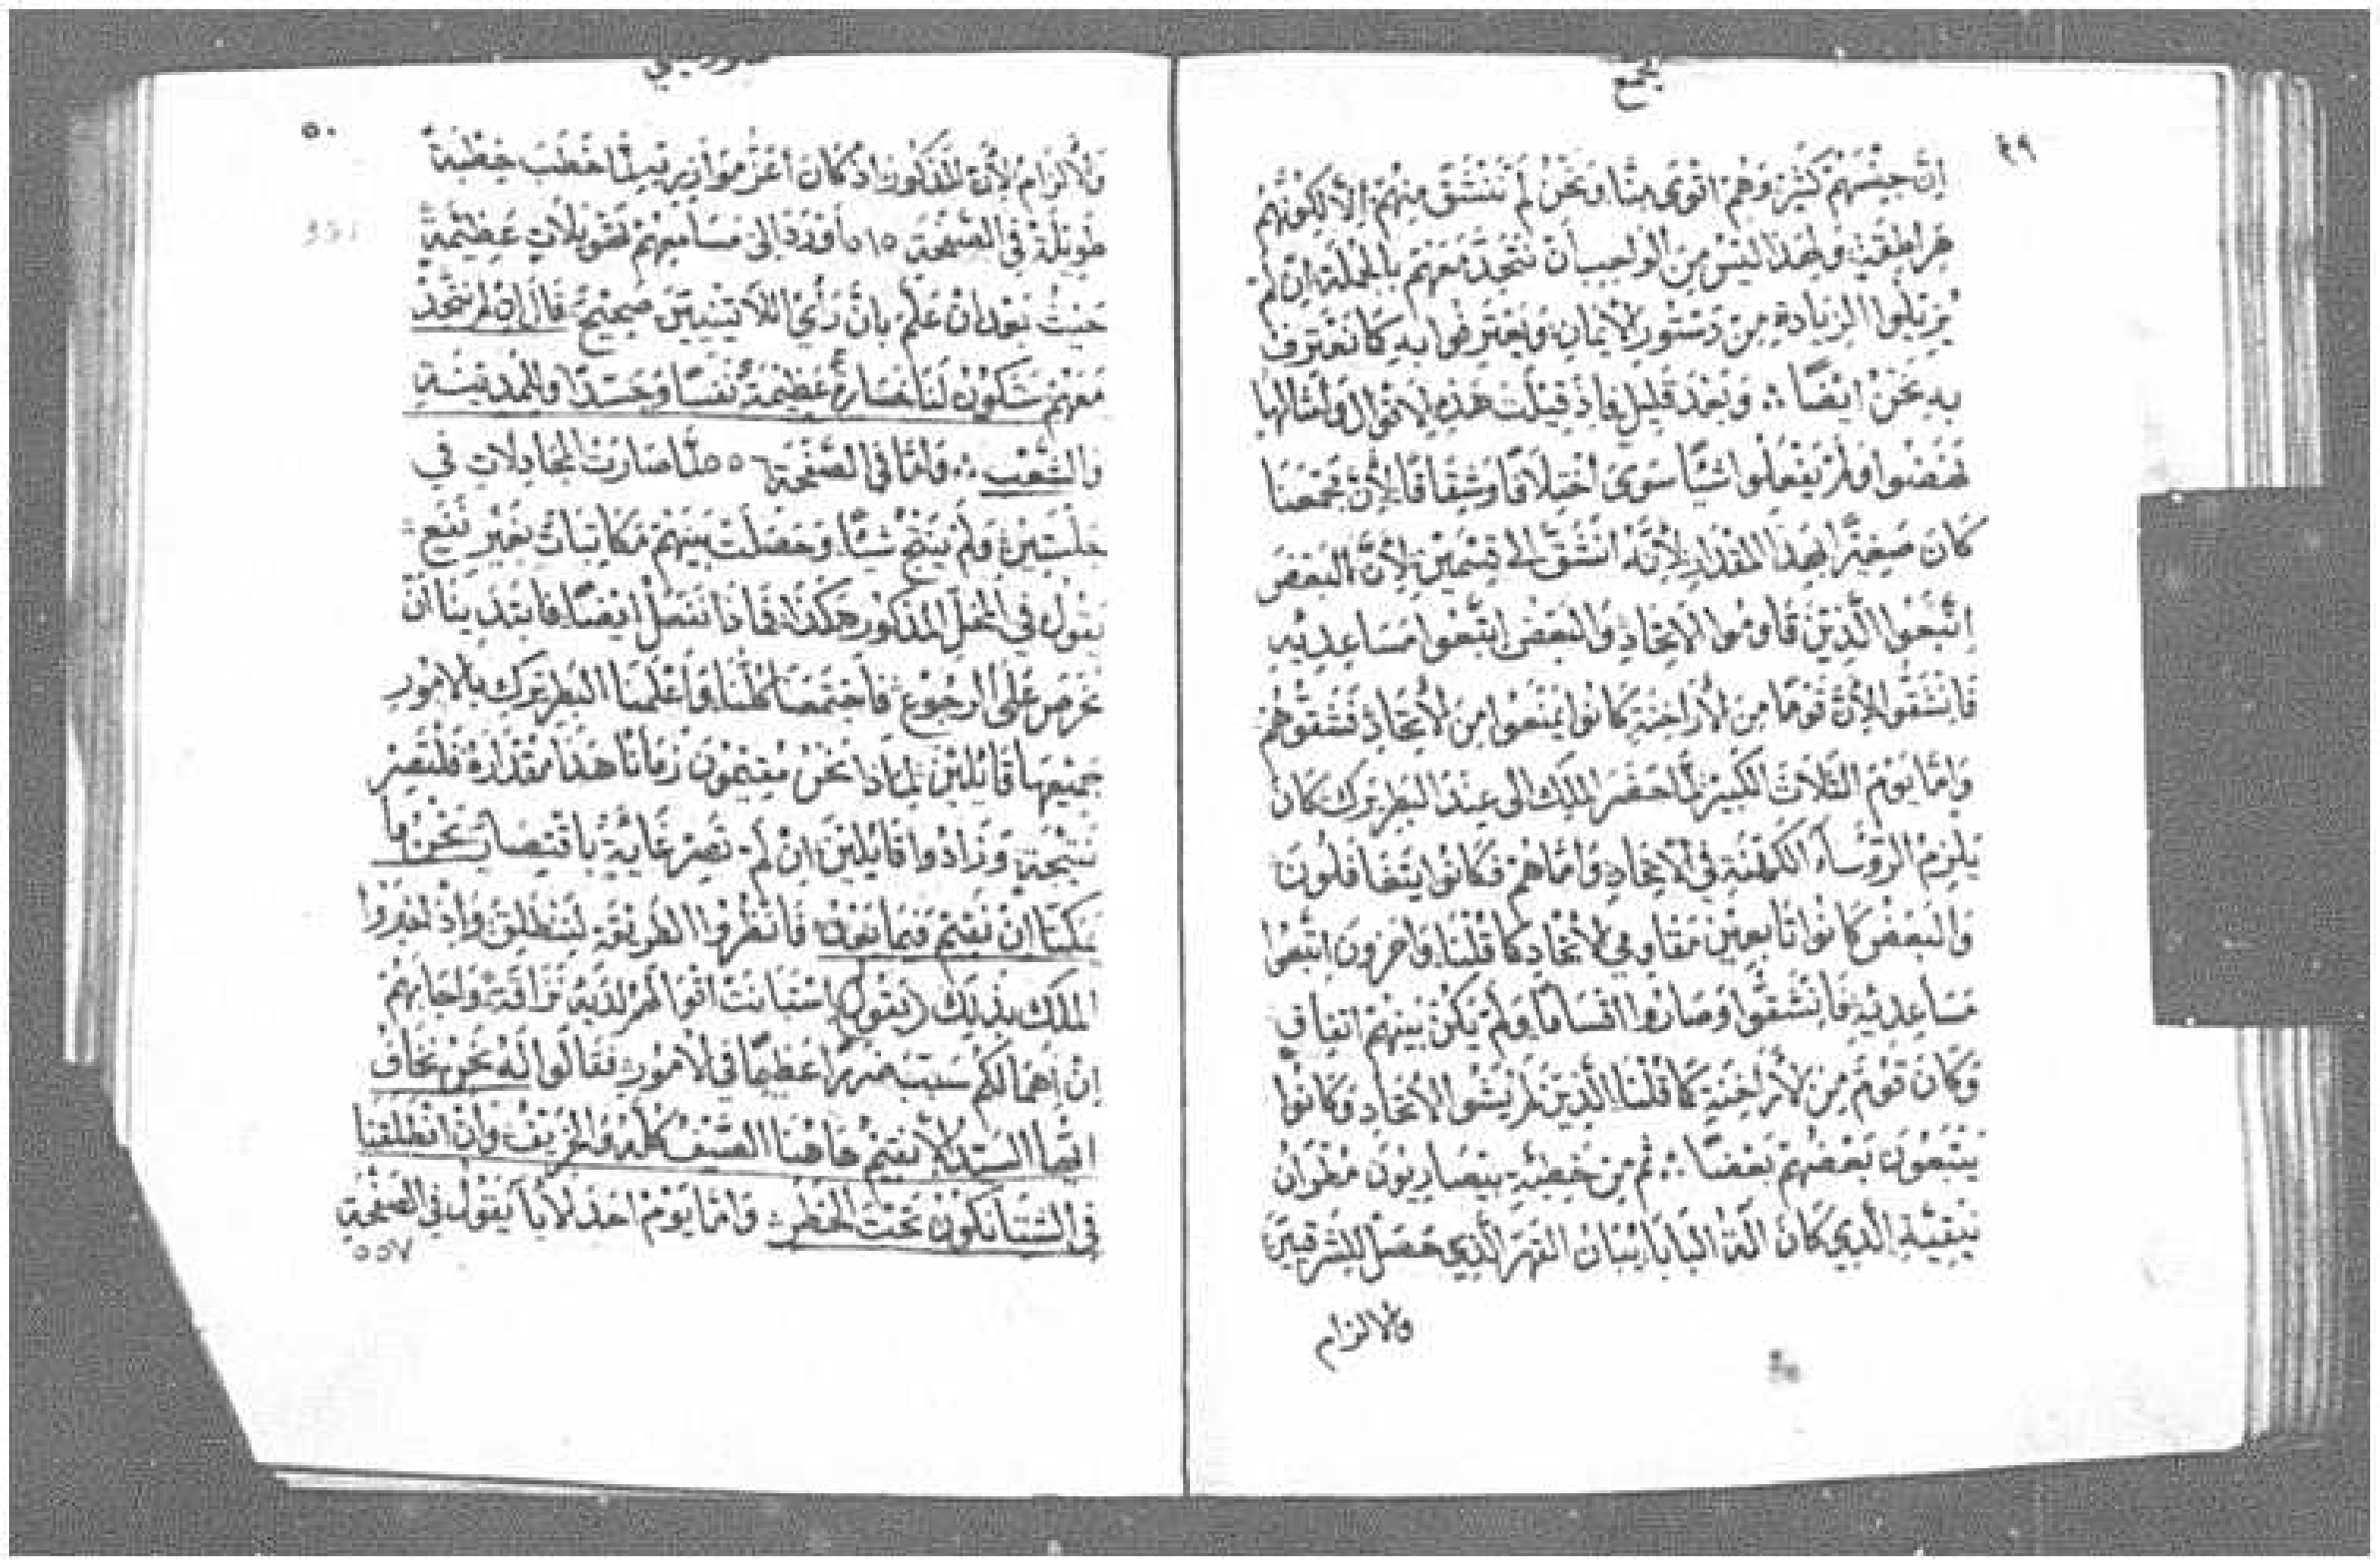 مجمع
٤٩
إِنَّ جِنْسَهُمْ كَثِيْر وَهُمْ اقْوَى مِنَّا وَنَحْنُ لَمْ نَنْشَقّ مِنْهُمْ إِلَّا لِكَوْنِهِمْ
هَراطِقَة وَلِهَذا لَيْسَ مِنَ الْواجِبِ أَنْ نَتَّحِدَ مَعَهُمْ بِالْجُمْلَة إِنْ لَمْ
يُزِيْلُوا الزِيادَة مِنْ دَسْتُورِ الْأَيْمانِ وَيَعْتَرِفُوا بِهِ كَما نَعْتَرِفُ
بِهِ نَحْنُ ايْضًا ؞ وَبَعْدَ قَلِيلٍ فَاِذْ قِيْلَتْ هَذِهِ الْاقْوال وَأَمْثَالها
نَهَضُوا وَلَمْ يَفْعَلُوا شَيْئًا سَوَى اخْتِلَافًا وَشِقَاقًا لِأَنَّ مَجْمَعَنَا
كَانَ صَغِيْرًا بِهَذا الْمِقْدَارِ لِأَنَّهُ انْشَقَّ الى قِسْمَيْنِ لِأَنَّ الْبَعْضَ
اتَّبَعُوا الَّذِيْنَ قَاوَمُوا الْإِتِحَادِ وَالْبَعْضُ اتَّبَعُوا مُسَاعِدِيْهِ
فَانْشَقُّوا لِأَنَّ قَوْمًا مِنَ الْأَرَاخِنَةِ كَانُوا يَمْنَعُوا مِنَ الْأتِحَادِ فَشَقُّوهُمْ
وَامَّا يَوْمَ الثَّلَاثِ الْكَبِيْرِ لَمَّا حَضَرَ الْمَلِكُ الى عِنْدَ الْبَطْرِيَرْكِ كَانَ
يُلْزِمُ الرُّؤَسَآءَ الْكَهَنَةِ في الْأتِحَادِ وَامَّا هُمْ فَكَانُوا يَتَغَافَلُونَ
وَالْبَعْضُ كَانُوا تَابِعِيْنَ مُقَاوِمِي الْأتِحَادِ كَمَا قُلْنَا وَاخَرُونَ اتَّبَعُوا
مُسَاعِدِيْهِ فَانْشَقُّوا وَصَارُوا اقْسَامًا وَلَمْ يَكُنْ بَيْنَهُمْ اتِفَاق
وَكَانَ قَوْمٌ مِنَ الْأَرَاخِنَةِ كَمَا قُلْنَا الَّذِينَ لَمْ يَشَوا الْأتِحَادِ وَكَانُوا
يَتْبَعُونَ بَعْضُهُمْ بَعْضًا ؞ ثُمَّ مِنْ خُطْبَةِ بِيصَارِيُونَ مُطْرَانْ
نِيقِيَّةِ الَّذِي كَانَ آلَةُ الْبَابَا يُبَانُ الْقَهْرَ الَّذِي حَصَلَ لِلشَّرْقِيِّيْنَ
والالزام
٥٠
وَالْألْزَامِ لِأَنَّ الْمَذْكُورَ اذْ كَانَ أَعَزَّ مُوَازِرِيْنَ خَطَبَ خِطْبَةً
طَوِيْلَةً فِي الصَّفْحَةِ ٥١٥ أَوْرَدَ الى مَسَامِعِهِمْ تَهْوِيْلَاتٍ عَظِيْمَةً
حَيْثُ بَعْدَ انْ عَلَّمَ بِانَّ رَأْيَ اللَّاتِيْنِيِّيْنَ صَحِيْحٌ قَالَ إِنْ لَمْ نَتَّحِدْ
مَعَهُمْ سَتَكُونُ لَنَا خَسَارَةٌ عَظِيْمَةٌ نَفْسًا وَجَسَدًا وَلِلْمَدِيْنَةِ
وَالشَّعْبِ ؞ وَامَّا فِي الصَّفْحَةِ ٥٥٦ لَمَّا صَارَتْ الْمُجَادِلَات في
جَلْسَتَيْنِ وَلَمْ يَنْتُجْ شَيْئًا وَحَصَلَتْ بَيْنَهُمْ مُكَاتَبَاتٌ بِغَيْرِ نَفْعٍ
يَقُولُ فِي الْمَحَلِّ الْمَذْكُورِ هَكَذَا فَمَاذَا نَفْعَلُ ايْضًا فَابْتَدَيْنَا انْ
نَحْرِصَ عَلَى الرُّجُوعِ فَاجْتَمَعْنَا كُلُّنَا وَاعْلَمْنَا الْبَطْرِيَرْكَ بِالْامُورِ
جَمِيْعِهَا قَائِلِيْنَ لِمَاذَا نَحْنُ مُقِيْمُونَ زَمَانًا هَذَا مِقْدَارُهُ فَلْتَصِرْ
نَتِيْجَة وَزَادُوا قَائِلِيْنَ انْ لَمْ تَصِرْ غَايَةٌ بِاقْتِصَارٍ نَحْنُ مَا
يُمْكِنَّا انْ نُقِيْمَ فِيمَا بَعْدُ فَانْظُرُوا الطَّرِيْقَةَ لِنَنْطَلِقَ وَإذْ اخْبَرُوا
الْمَلِكَ بِذَلِكَ (يَقُولُ) اسْتَبَانَتْ اقْوَالُهُمْ لَدَيْهِ وَاجَابَهُمْ
انَّ إهْمَالَكُمْ سَبَّبَ ضَرَرًا عَظِيمًا في الْامُورِ فَقَالُوا لَهُ نَحْنُ نَخَافُ
ايُّهَا السَّيِّدُ لِأَلَّا نُقِيْمَ هَاهُنَا الصَّيْفَ كُلَّهُ وَالْخَرِيْفَ وَإنْ انْطَلَقْنَا
فِي الشِّتَا نَكُونُ تَحْتَ الْخَطَرِ وَامَّا يَوْمَ احَدَ الْأبَا يَقُولُ في الصَّفْحَةِ
٥٥٧